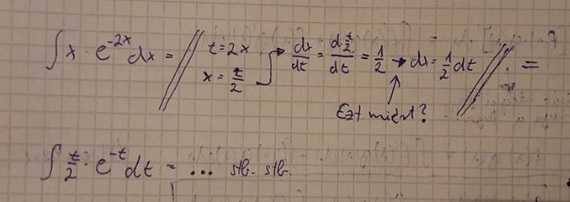 ∫ x · e^{-2x} dx = // t = 2x  x = t/2 → dx/dt = d t/2 / dt = 1/2 → dx = 1/2 dt // · =
Ezt miért?
∫ t/2 · e^{-t} dt = ... stb. stb.